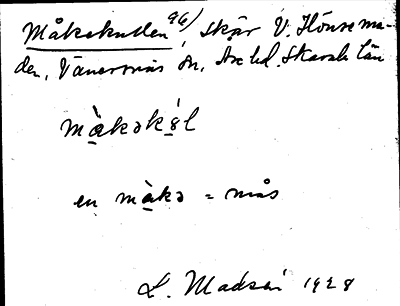 Måkakullen 96/ skär V. Hönsema-
den, Vänersnäs sn, Åse hd. Skarab. län
màkəkə́l
en màkə = mås
L. Madsén 1928